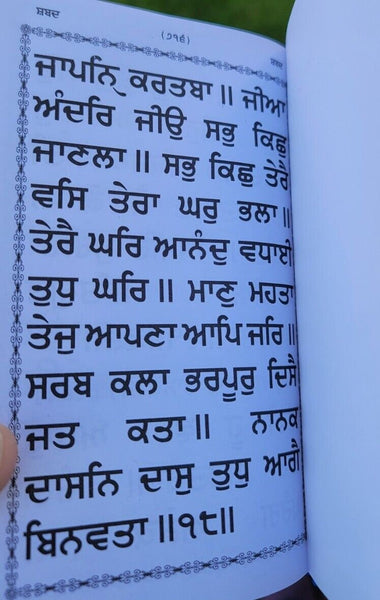 ਸ਼ਬਦ (੭੧੬) ਸ਼ਬਦ
ਜਾਪਨੑਿ ਕਰਤਬਾ ॥ ਜੀਆ
ਅੰਦਰਿ ਜੀਉ ਸਭੁ ਕਿਛੁ
ਜਾਣਲਾ ॥ ਸਭੁ ਕਿਛੁ ਤੇਰੈ
ਵਸਿ ਤੇਰਾ ਘਰੁ ਭਲਾ ॥
ਤੇਰੈ ਘਰਿ ਆਨੰਦੁ ਵਧਾਈ
ਤੁਧੁ ਘਰਿ ॥ ਮਾਣੁ ਮਹਤਾ
ਤੇਜੁ ਆਪਣਾ ਆਪਿ ਜਰਿ ॥
ਸਰਬ ਕਲਾ ਭਰਪੂਰੁ ਦਿਸੈ
ਜਤ ਕਤਾ ॥ ਨਾਨਕ
ਦਾਸਨਿ ਦਾਸੁ ਤੁਧੁ ਆਗੈ
ਬਿਨਵਤਾ ॥੧੮॥